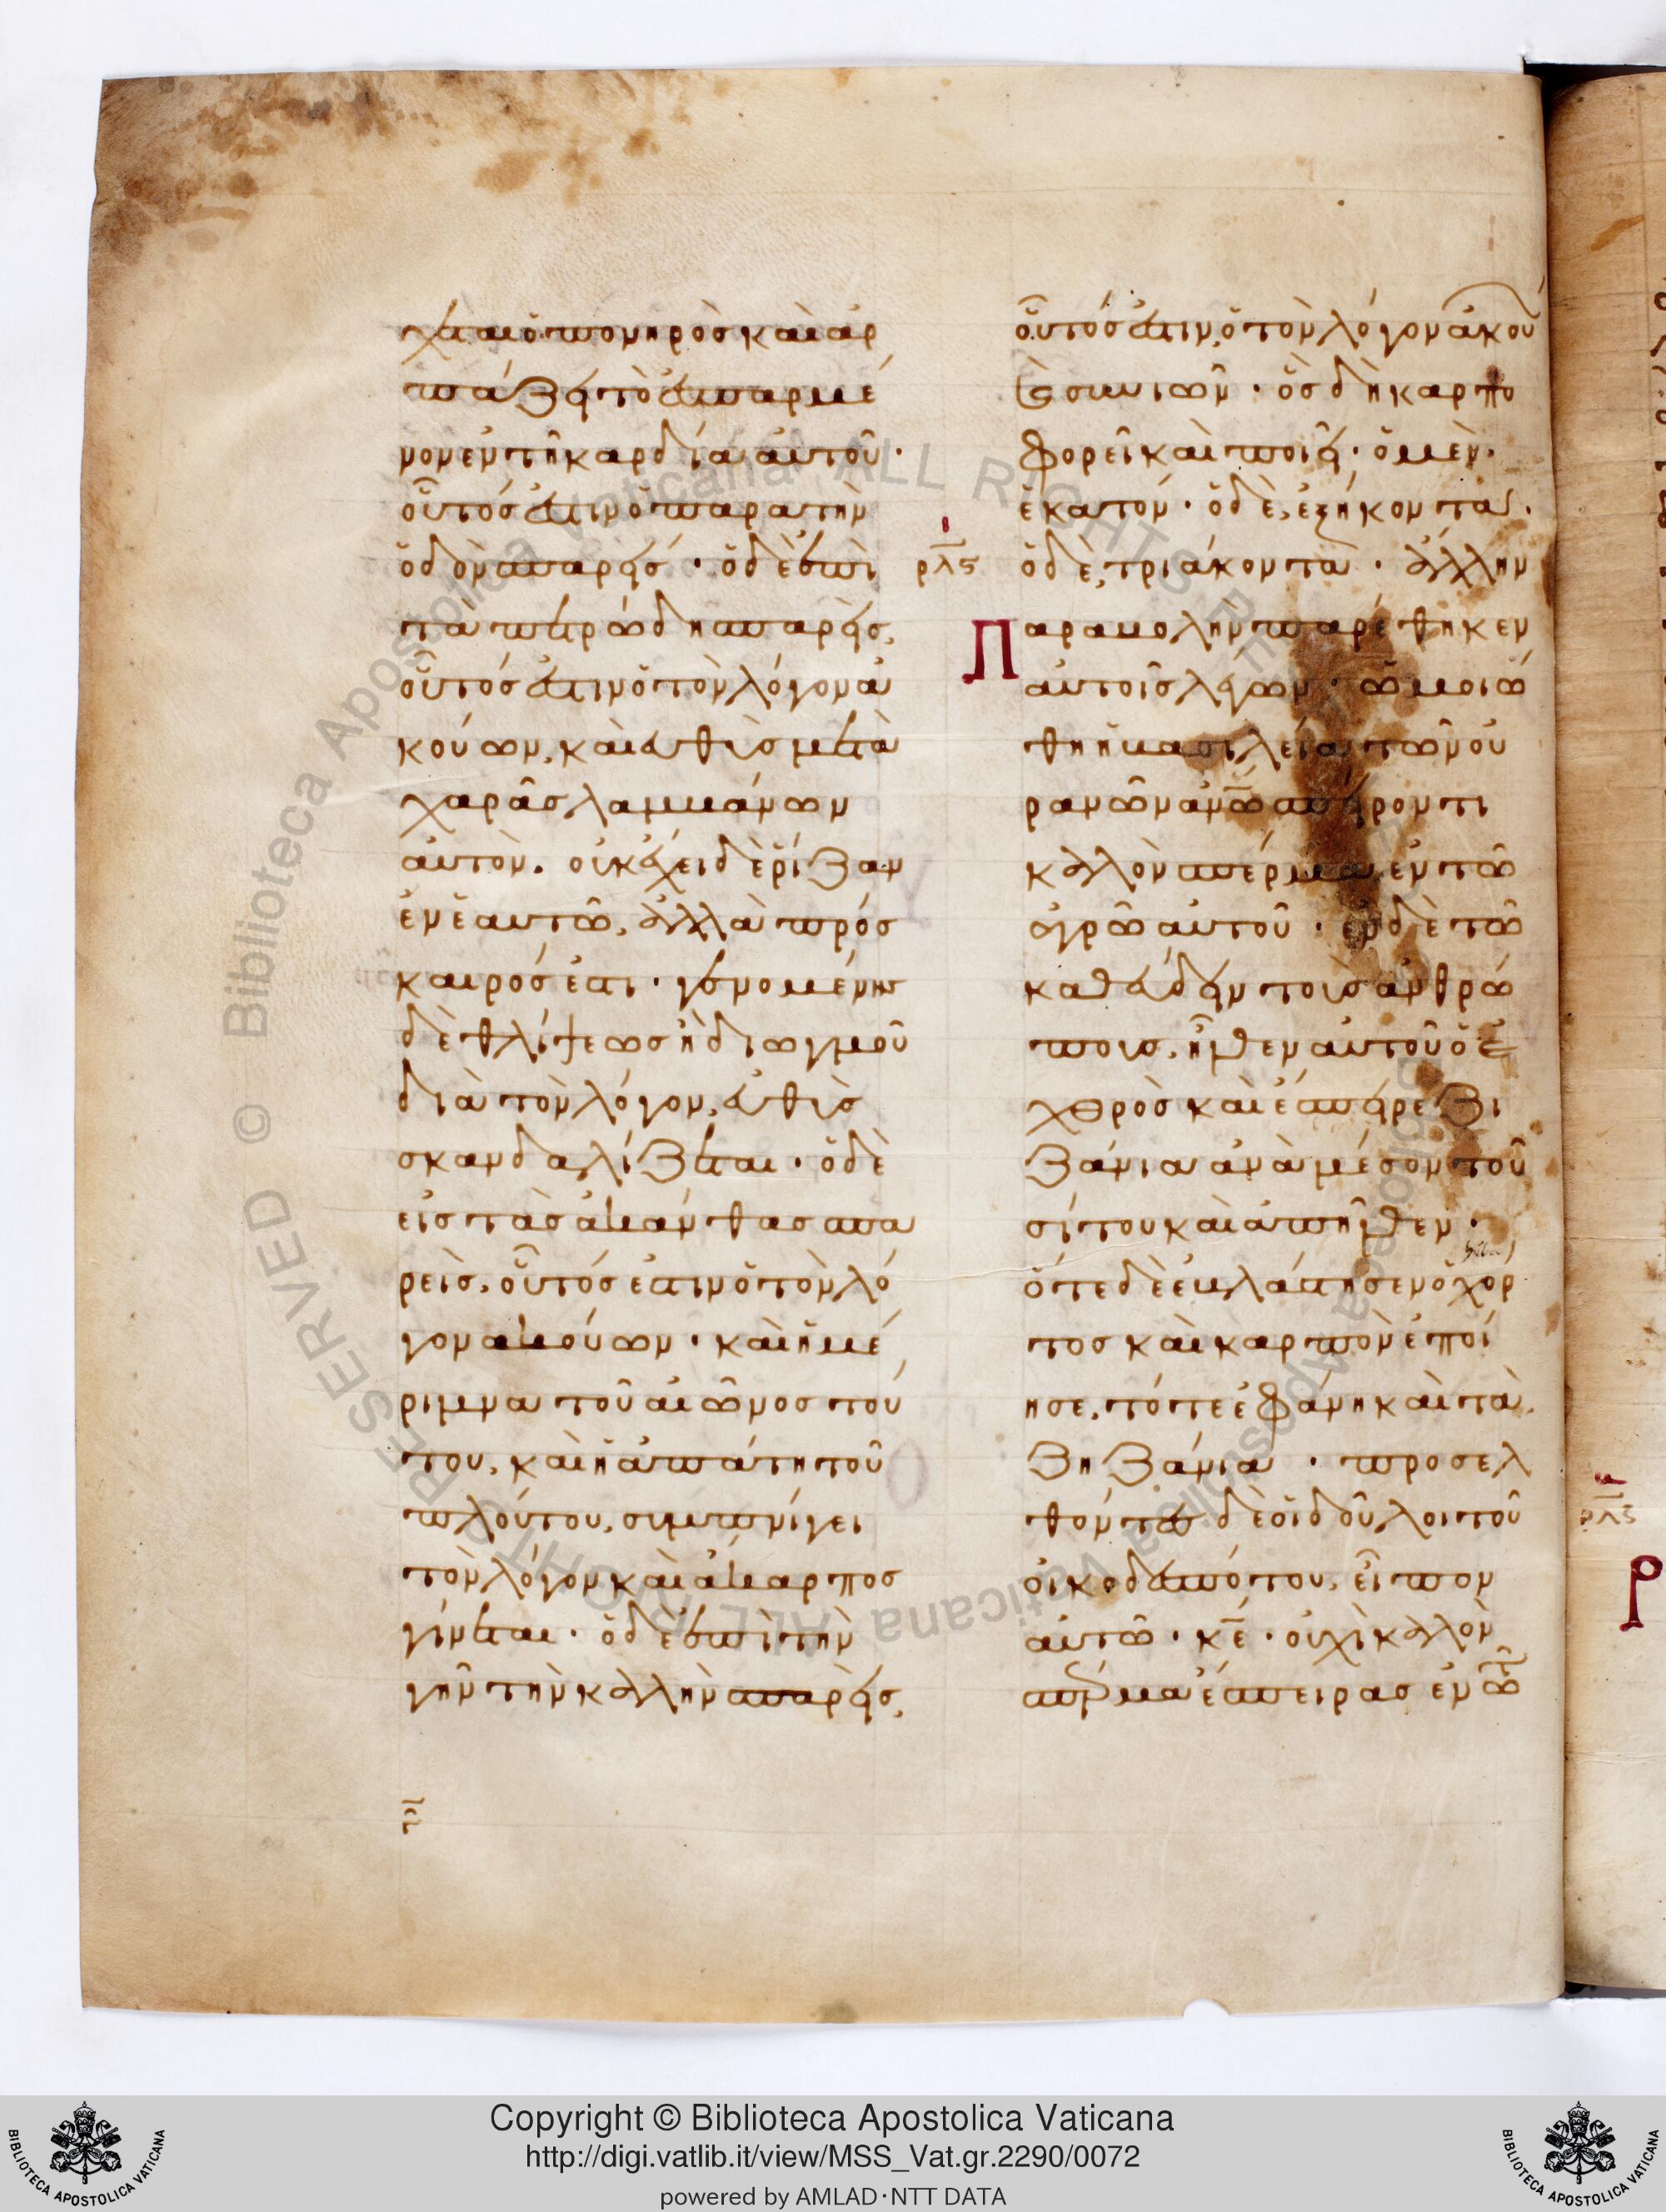 χεται ὁ πονηρὸς καὶ ἁρ
πάζει τὸ ἐσπαρμέ
νον ἐν τῆ καρδία αὐτοῦ ·
οὗτός ἐστιν ὁ παρα τὴν
ὁδὸν σπαρείς · ὁ δὲ ἐπὶ
τὰ πετρώδη σπαρεὶς,
οὗτός ἐστιν ὁ τὸν λόγον ἀ
κούων, καὶ εὐθὺς μετὰ
χαρᾶς λαμβάνων
αὐτὸν. οὐκ ἔχει δὲ ῥίζαν
ἐν ἑαυτῶ, ἀλλὰ πρόσ
καιρός ἐστι · γενομένης
δὲ θλίψεως ἢ διωγμοῦ
διὰ τὸν λόγον, εὐθὺς
σκανδαλίζεται · ὁ δὲ
εἰς τὰς ἀκάνθας σπα
ρεὶς, οὗτός ἐστιν ὁ τὸν λό
γον ἀκούων · καὶ ἡ μέ
ριμνα τοῦ αἰῶνος τού
του, καὶ ἡ ἀπάτη τοῦ
πλούτου, συμπνίγει
τὸν λόγον καὶ ἄκαρπος
γίνεται · ὁ δὲ ἐπὶ τὴν
γῆν τὴν καλὴν σπαρεὶς,
οὗτός ἐστιν, ὁ τὸν λόγον ἀκού
ων
καὶ συνιῶν · ὃς δὴ καρπο
φορεῖ καὶ ποιεῖ · ὁ μὲν ·
ἑκατόν · ὁ δὲ, ἑξήκοντα ·
ρλς ὁ δὲ, τριάκοντα · ἄλλην
Παραβολὴν παρέθηκεν
αὐτοῖς λέγων · ὡμοιώ
θη ἡ βασιλεία τῶν οὐ
ρανῶν ἀνῶ σπείροντι
καλὸν σπέρμα ἐν τῶ
ἀγρῶ αὐτοῦ · ἐν δὲ τῶ
καθεύδειν τοὺς ἀνθρώ
πους, ἦλθεν αὐτοῦ ὁ ἐ
χθρὸς καὶ ἔσπειρε ζι
ζάνια ἀνὰ μέσον τοῦ
σίτου καὶ ἀπῆλθεν ·
ὅτε δὲ ἐβλάστησεν ὁ χόρ
τος καὶ καρπὸν ἐποί
ησε, τότε ἐφάνη καὶ τὰ
ζηζάνια · προσελ
θόντες δὲ οἱ δοῦλοι τοῦ
οἰκοδεσπότου, εἶπον
αὐτῶ · κε · οὐχὶ καλὸν
σπέρμα ἔσπειρας ἐν τῶ
Copyright © Biblioteca Apostolica Vaticana
http://digi.vatlib.it/view/MSS_Vat.gr.2290/0072
powered by AMLAD·NTT DATA